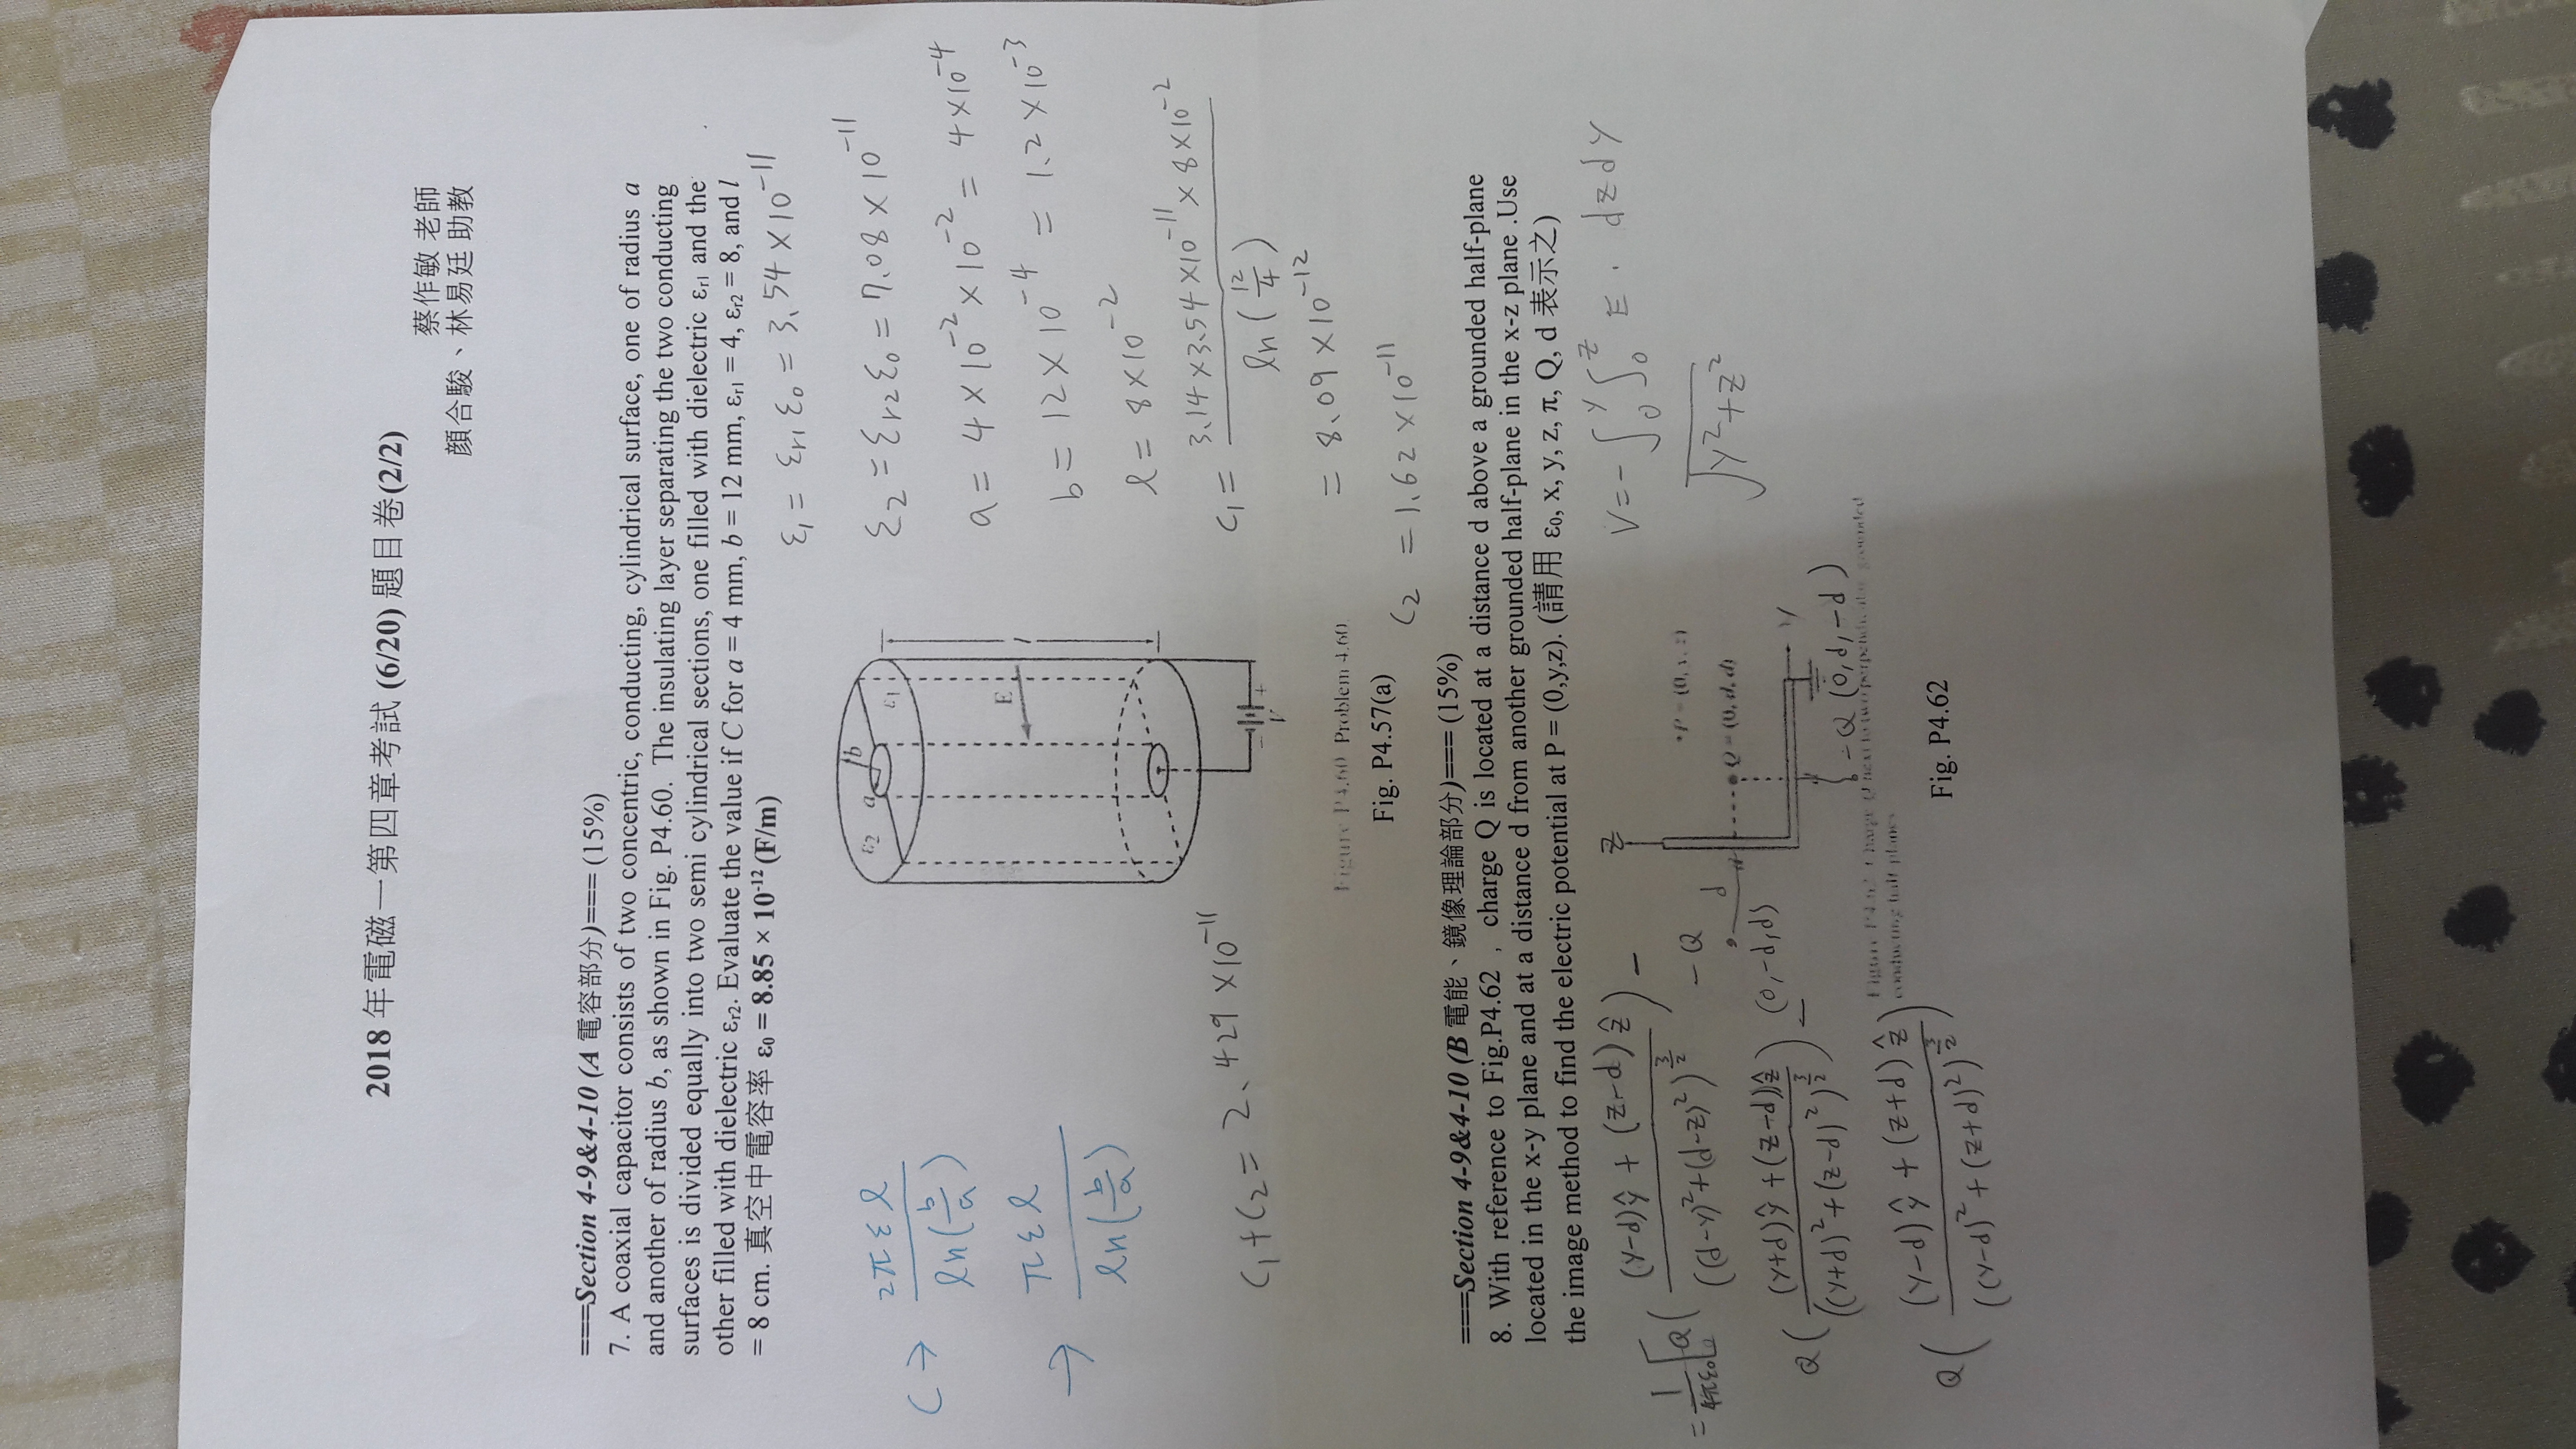 2018 年電磁一第四章考試 (6/20) 題目卷(2/2)
蔡作敏 老師
顏合駿、林易廷 助教
===Section 4-9&4-10 (A 電容部分)=== (15%)
7. A coaxial capacitor consists of two concentric, conducting, cylindrical surface, one of radius a
and another of radius b, as shown in Fig. P4.60. The insulating layer separating the two conducting
surfaces is divided equally into two semi cylindrical sections, one filled with dielectric εr1 and the
other filled with dielectric εr2. Evaluate the value if C for a = 4 mm, b = 12 mm, εr1 = 4, εr2 = 8, and l
= 8 cm. 真空中電容率 ε0 = 8.85 × 10^-12 (F/m)
ε1 = εr1 ε0 = 3.54 × 10^-11
ε2 = εr2 ε0 = 7.08 × 10^-11
a = 4 × 10^-2 × 10^-2 = 4 × 10^-4
b = 12 × 10^-4 = 1.2 × 10^-3
l = 8 × 10^-2
C1 = 3.14 × 3.54 × 10^-11 × 8 × 10^-2 / ln(12/4)
= 8.09 × 10^-12
C2 = 1.62 × 10^-11
C → 2πεl / ln(b/a)
→ πεl / ln(b/a)
C1 + C2 = 2.429 × 10^-11
ε2 a b ε1
E
l
− + V
Figure P4.60 Problem 4.60.
Fig. P4.57(a)
===Section 4-9&4-10 (B 電能、鏡像理論部分)=== (15%)
8. With reference to Fig.P4.62 , charge Q is located at a distance d above a grounded half-plane
located in the x-y plane and at a distance d from another grounded half-plane in the x-z plane .Use
the image method to find the electric potential at P = (0,y,z). (請用 ε0, x, y, z, π, Q, d 表示之)
= 1/4πε0 [Q( (y-d)ŷ + (z-d)ẑ / ((d-y)^2+(d-z)^2)^3/2 ) −
Q( (y+d)ŷ + (z-d)ẑ / ((y+d)^2+(z-d)^2)^3/2 ) −
Q( (y-d)ŷ + (z+d)ẑ / ((y-d)^2+(z+d)^2)^3/2 )
V = -∫0^y ∫0^z E · dzdy
√(y^2+z^2)
z
P = (0, y, z)
-Q
d
Q = (0, d, d)
(0,-d,d)
y
-Q (0,d,-d)
Figure P4.62 Charge Q next to two perpendicular grounded
conducting half planes
Fig. P4.62